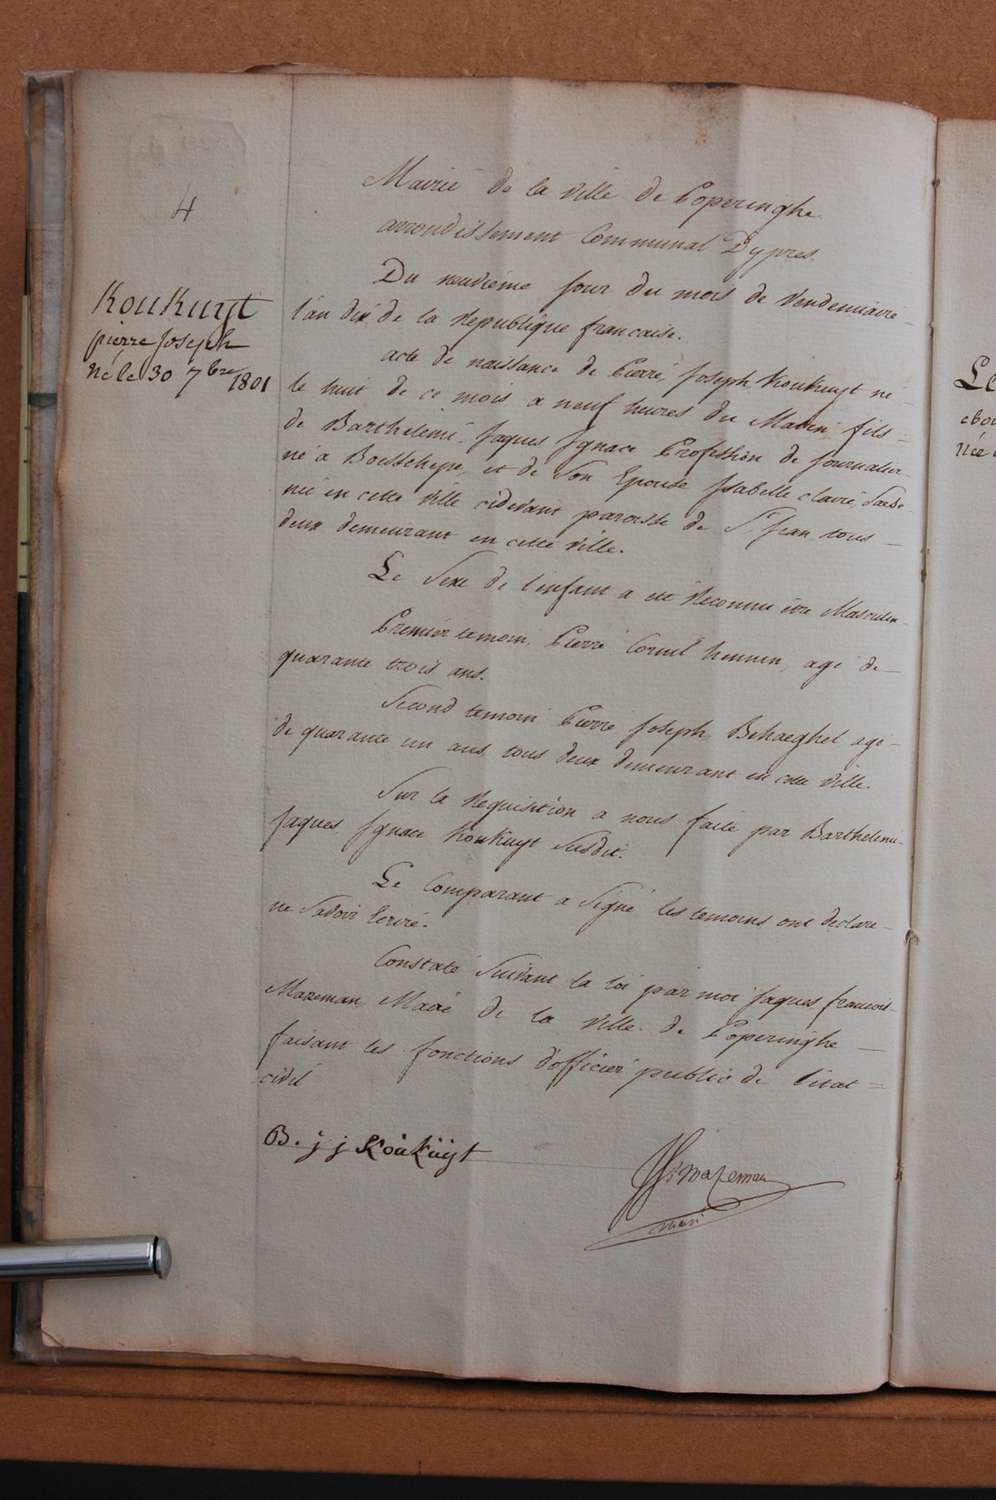 4
Koukuyt
pierre Joseph
né le 30 7bre 1801
Mairie de la ville de Poperinghe
arrondissement Communal Dypres.
Du neuvieme jour du mois de Vendemiaire
l'an dix de la Republique francaise.
acte de naissance de Pierre Joseph Koukuyt né
le huit de ce mois a neuf heures du Matin fils
de Barthelemi Jaques Ignace Profession de journalier
né a Boesschepe, et de Son Epouse Isabelle claire
née en cette ville cidevant paroisse de St Jean tous
deux demeurant en cette ville.
Le Sexe de l'infant a eté Reconnu etre Masculin
Premier temoin Pierre Cornil hennin, agé de
quarante trois ans.
Second temoin Pierre Joseph Behaeghel agé
de quarante un ans, tous deux demeurant en cette ville.
Sur la Requisition a nous faite par Barthelemi
Jaques Ignace Koukuyt Susdit.
Le Comparant a Signé les temoins ont declaré
ne Savoir Ecrire.
Constaté Suivant la loi par moi Jaques francois
Mazeman Maire de la Ville de Poperinghe
faisant les fonctions d'officier public de l'état
civil
B. j j Koukuyt
Mazeman
Maire
Le
née